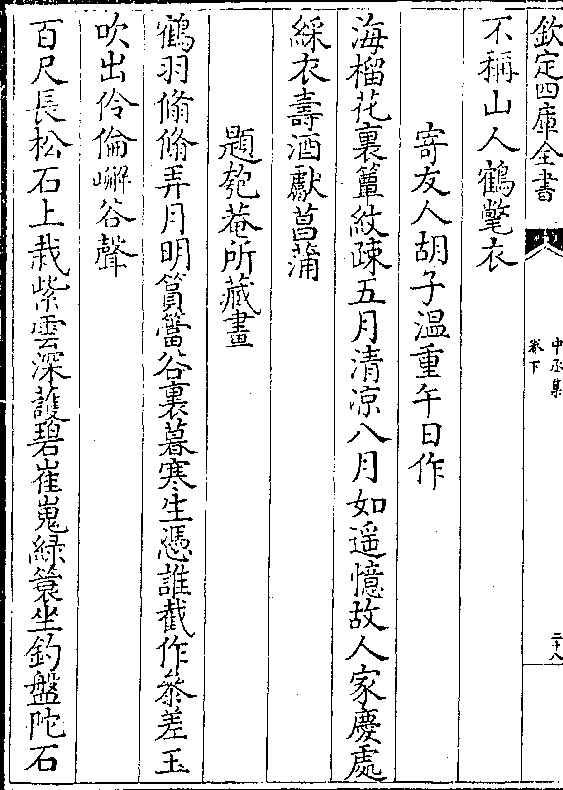 欽定四庫全書
中丞集
卷下
二十八
不稱山人鶴氅衣
寄友人胡子温重午日作
海榴花裏簟紋疎五月清凉八月如遥憶故人家慶處
綵衣壽酒獻菖蒲
題匏菴所藏畫
鶴羽翛翛弄月明篔簹谷裏暮寒生憑誰截作參差玉
吹出伶倫嶰谷聲
百尺長松石上栽紫雲深護碧崔嵬緑簑坐釣盤陀石